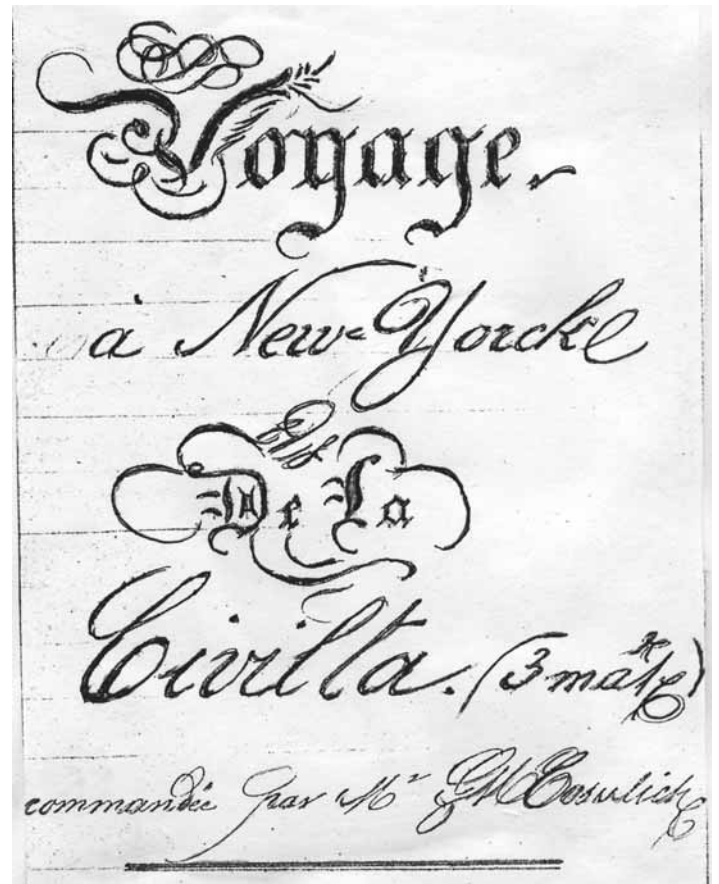 Voyage.
à New=Yorcke
De La
Civilta. (3 mâts)
commandée par Mr G M Cosulich